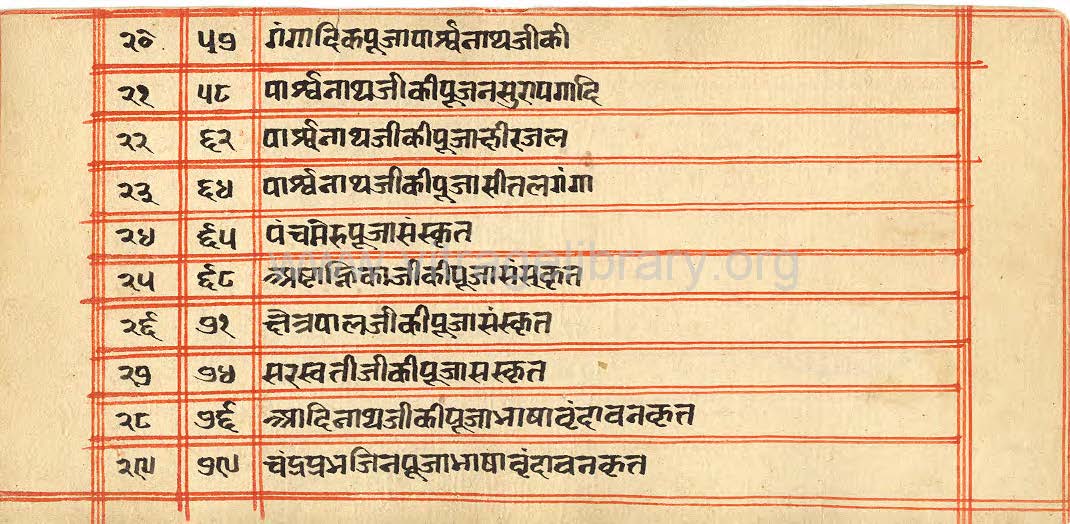 २० ५७ गंगादिकपूजापार्श्वनाथजीकी
२१ ५८ पार्श्वनाथजीकीपूजनसुरापगादि
२२ ६२ पार्श्वनाथजीकीपूजाक्षीरजल
२३ ६४ पार्श्वनाथजीकीपूजासीतलगंगा
२४ ६५ पंचमेरुपूजासंस्कृत
२५ ६८ अष्टाह्निकाजीकीपूजासंस्कृत
२६ ७१ क्षेत्रपालजीकीपूजासंस्कृत
२७ ७४ सरस्वतीजीकीपूजासस्कृत
२८ ७६ आदिनाथजीकीपूजाभाषावृंदावनकृत
२९ ७९ चंद्रप्रभजिनपूजाभाषावृंदावनकृत